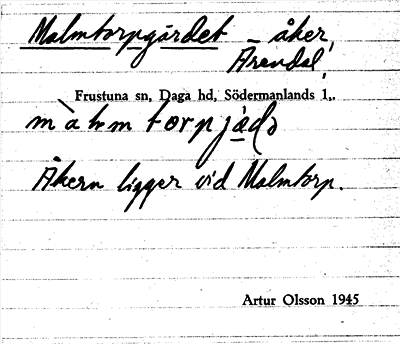 Malmtorpgärdet – åker,
Arendal,
Frustuna sn, Daga hd, Södermanlands l,.
Åkern ligger vid Malmtorp.
Artur Olsson 1945